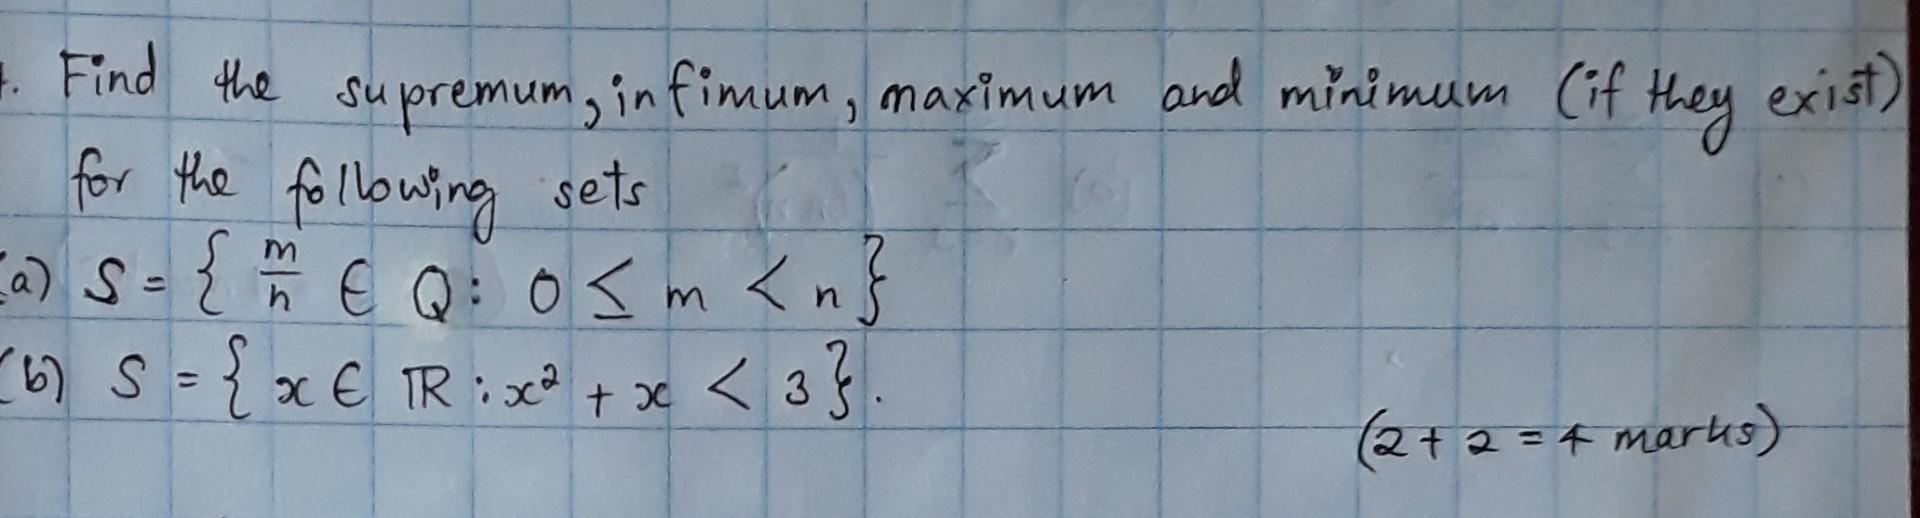 . Find the supremum, infimum, maximum and minimum (if they exist)
for the following sets
(a) S = { m/n ∈ Q : 0 ≤ m < n }
(b) S = { x ∈ ℝ : x² + x < 3 }.
(2 + 2 = 4 marks)